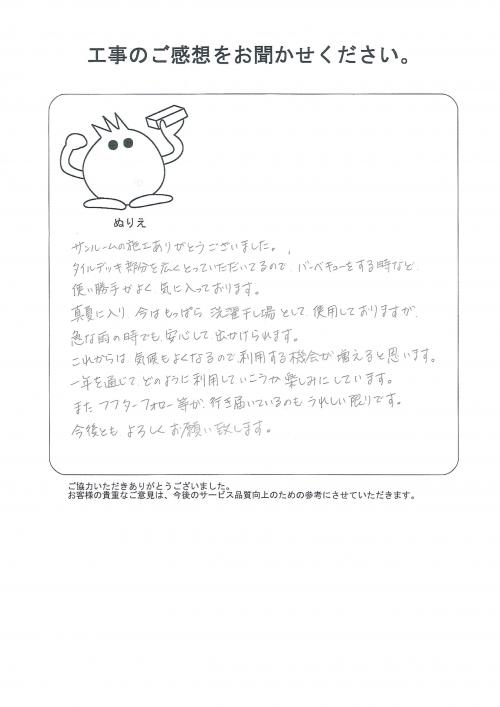 工事のご感想をお聞かせください。
ぬりえ
サンルームの施工ありがとうございました。
タイルデッキ部分を広くとっていただいてるので、バーベキューをする時など、
使い勝手がよく 気に入っております。
真夏に入り、今はもっぱら 洗濯干し場として 使用しておりますが、
急な雨の時でも、安心して 出かけられます。
これからは 気候もよくなるので 利用する機会が 増えると思います。
一年を通じて、どのように利用していこうか 楽しみにしています。
また、アフターフォロー等が、行き届いているのも うれしい限りです。
今後とも よろしく お願い致します。
ご協力いただきありがとうございました。
お客様の貴重なご意見は、今後のサービス品質向上のための参考にさせていただきます。